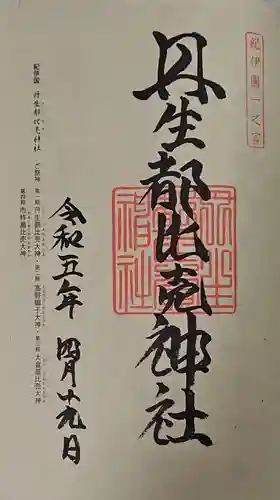 紀伊國一之宮
丹生都比売神社
令和五年 四月十九日
紀伊国 丹生都比売神社 ご祭神 第一殿 丹生都比売大神・第二殿 高野御子大神・第三殿 大食都比売大神
第四殿 市杵島比売大神